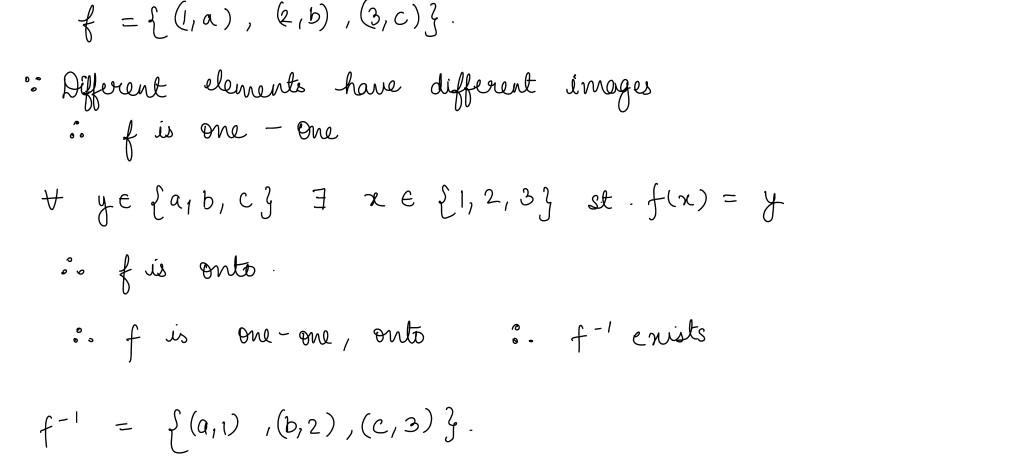 f = { (1, a) , (2, b) , (3, c) } .
∵ Different elements have different images
∴ f is one - one
∀ y ∈ {a, b, c} ∃ x ∈ {1, 2, 3} st . f(x) = y
∴ f is onto .
∴ f is one - one, onto ∴ f⁻¹ exists
f⁻¹ = { (a, 1) , (b, 2) , (c, 3) } .